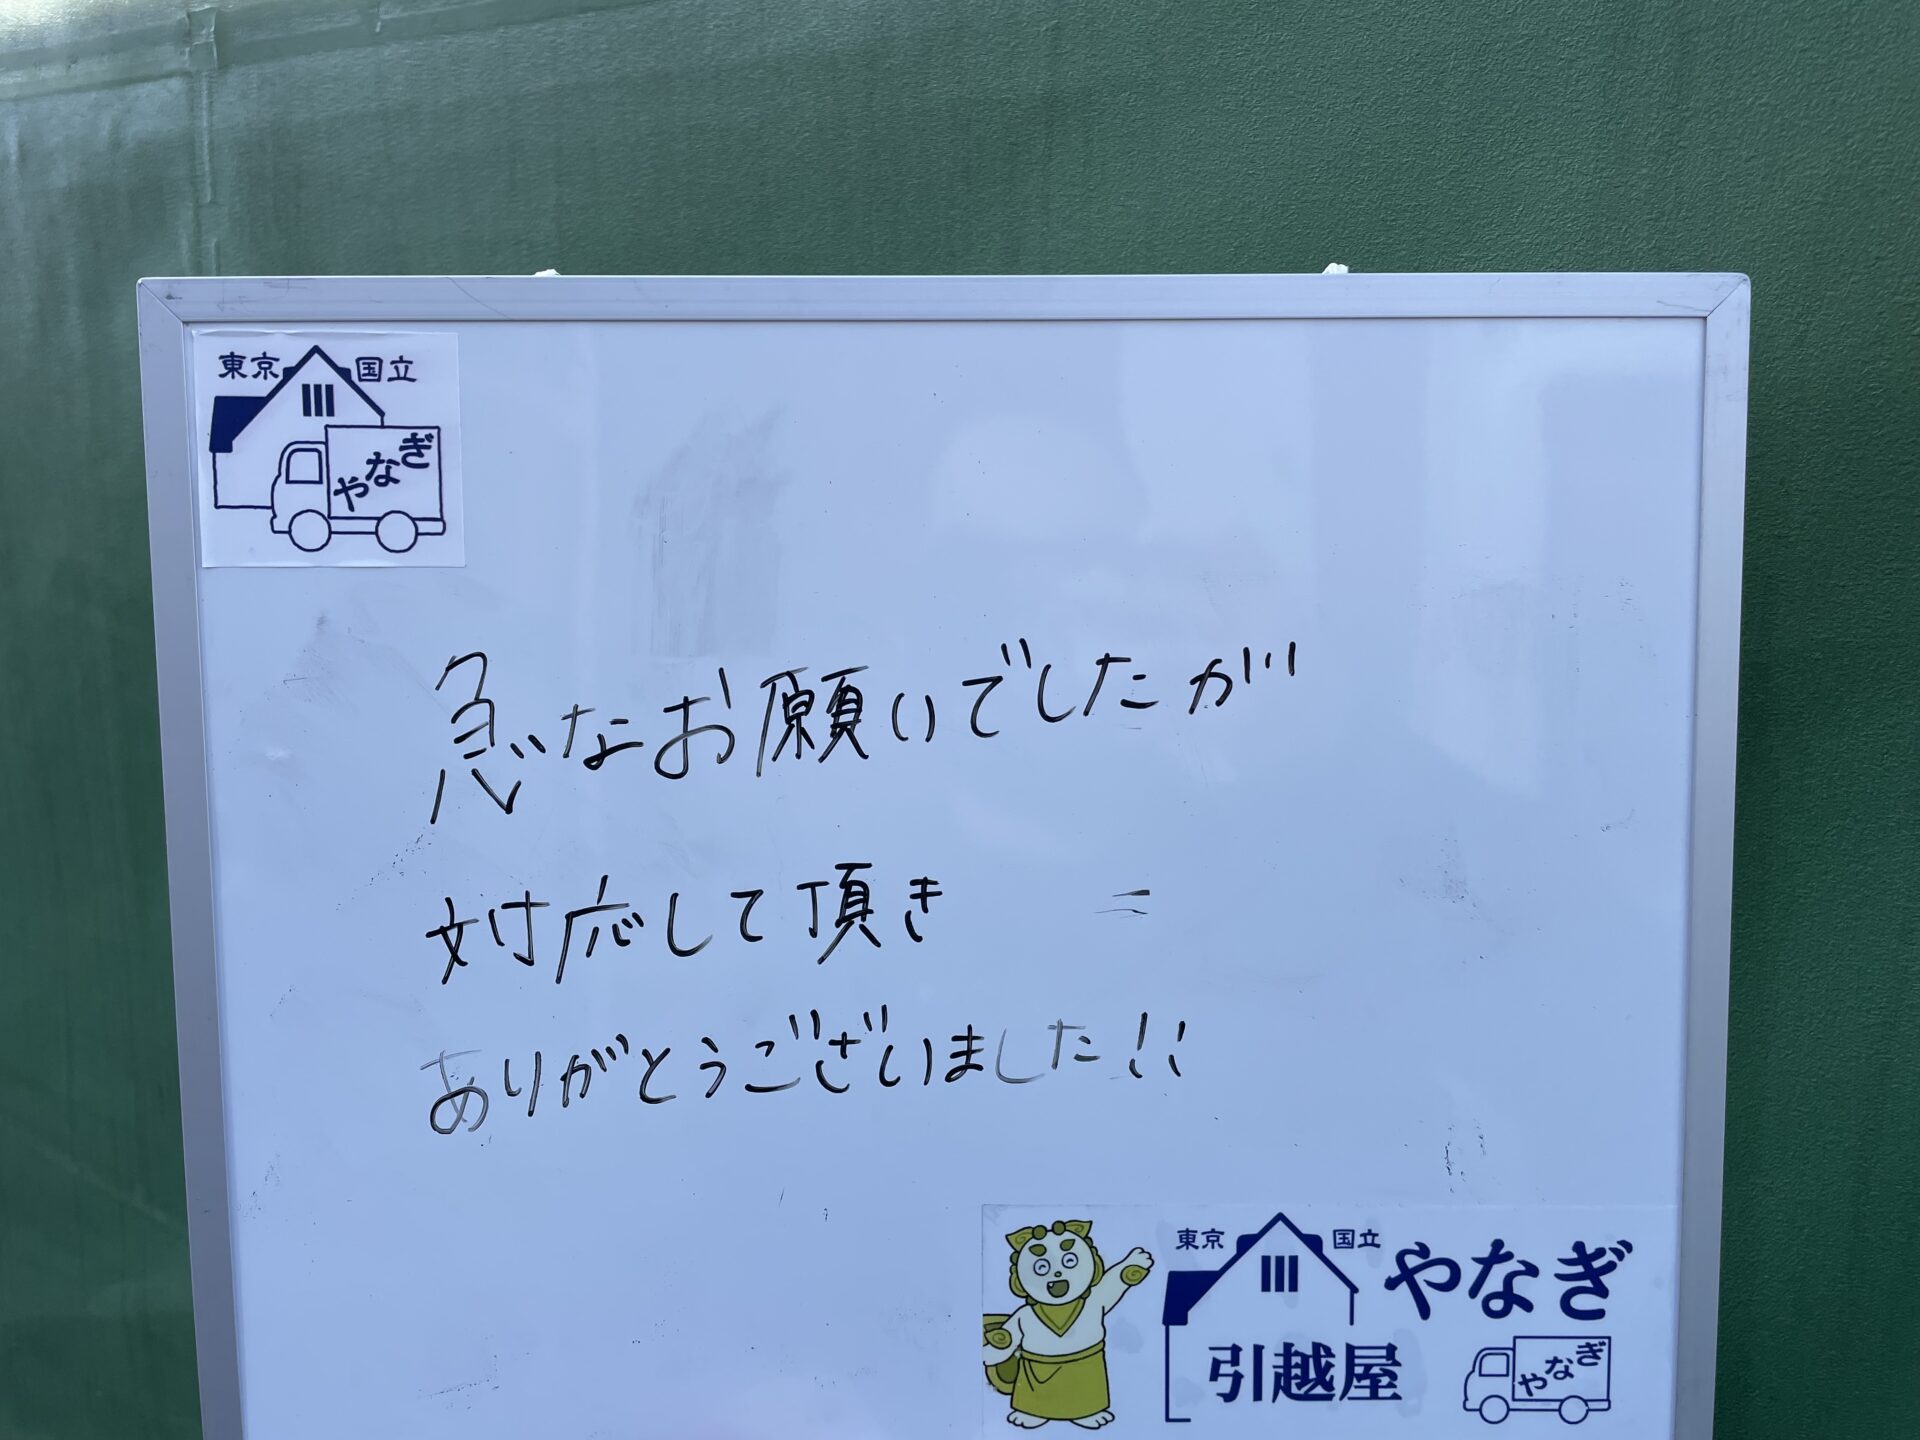 東京 国立
やなぎ
急なお願いでしたが
対応して頂き
ありがとうございました!!
東京 国立 やなぎ
引越屋
やなぎ